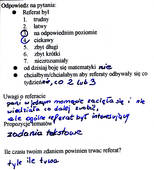 Odpowiedz na pytania:
• Referat był
1. trudny
2. łatwy
3 na odpowiednim poziomie
4 ciekawy
5. zbyt długi
6. zbyt krótki
7. niezrozumiały
• od dzisiaj boję się matematyki nie
• chciałbym/chciałabym aby referaty odbywały się co tydzień, co 2 lub 3
Uwagi o referacie
pani w jednym momencie zacięła się i nie
wiedziała co dalej zrobić,
ale ogólnie referat był interesujący
Propozycje tematów
zadania tekstowe
Ile czasu twoim zdaniem powinien trwać referat?
tyle ile trwa